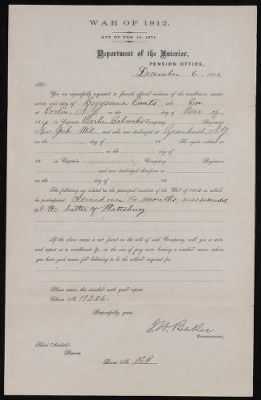 WAR OF 1812.
ACT OF FEB. 14, 1871.
Department of the Interior,
PENSION OFFICE,
December 6, 187
Sir:
You are respectfully requested to furnish official evidence of the enrollment, muster,
service, and duty of Benjamin Coats, who
at Berlin, N.Y. on the day of
181 in Captain Company, Regiment
New York Mil. and who was discharged at Greenbush, N.Y.
on the day of 18 He again enlisted at
on the day of
18 in Captain Company, Regiment
and was discharged therefrom at
on the day of 18
The following are stated as the principal incidents of the War of 1812 in which
he participated. Served over 14 months, was wounded
at the battle of Plattsburg
If the above name is not found on the rolls of said Company, will you so state,
and report as to enrollment, &c., in the case of any name bearing a similar sound where
you have good reason for believing it to be the soldier inquired for.
Please return this circular with your report.
Claim No. 19226
Respectfully, yours,
J. H. Baker
Commissioner.
Third Auditor,
Present.